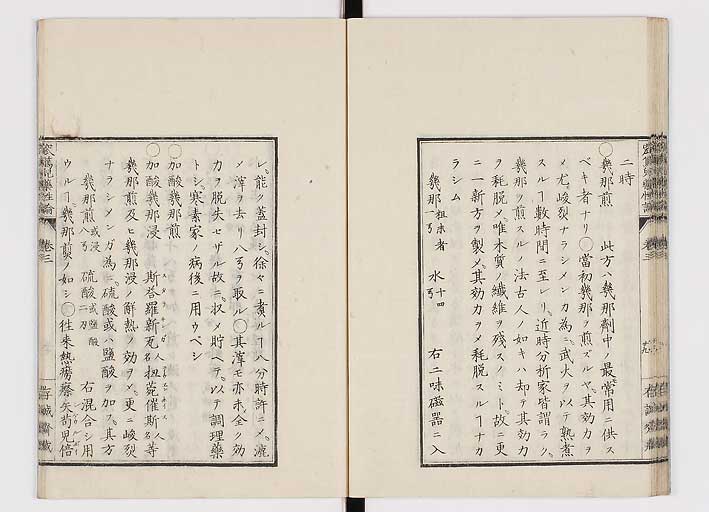 二時
◯幾那煎 此方ハ幾那劑中ノ最常用ニ供ス
ベキ者ナリ◯當初幾那ヲ煎ズルヤ其効力ヲ
メ尤峻烈ナラシメンカ為ニ武火ヲ以テ熟煮
スルヿ數時間ニ至レリ近時分析家皆謂ラク
幾那ヲ煎スルノ法古人ノ如キハ却テ其効力
ヲ耗脱メ唯木質ノ纖維ヲ殘スノミト故ニ更
ニ一新方ヲ製メ其効力ヲメ耗脱スルヿナカ
ラシム
幾那 粗末者 一弓 水 十四弓 右二味磁器ニ入
レ能ク蓋封シ徐々ニ煮ルヿ八分時許ニメ漉
メ滓ヲ去リ八弓ヲ取ル◯其滓モ亦未全ク効
力ヲ脱失セザル故ニ收メ貯ヘテ以テ調理藥
トシ寒素家ノ病後ニ用ウベシ
◯加酸幾那煎
◯加酸幾那浸 斯荅羅新 人名 扭菀催斯 人名 等
幾那煎及ヒ幾那浸ノ解熱ノ効ヲメ更ニ峻烈
ナラシメンガ為ニ硫酸或ハ鹽酸ヲ加ス其方
幾那煎 或浸 八弓 硫酸 或鹽酸 二刃 右混合シ用
ウルヿ幾那煎ノ如シ◯徃來熱癆瘵矢苟児倍
窊篤児藥性論 卷三
存誠齋藏
卷三
存誠齋藏